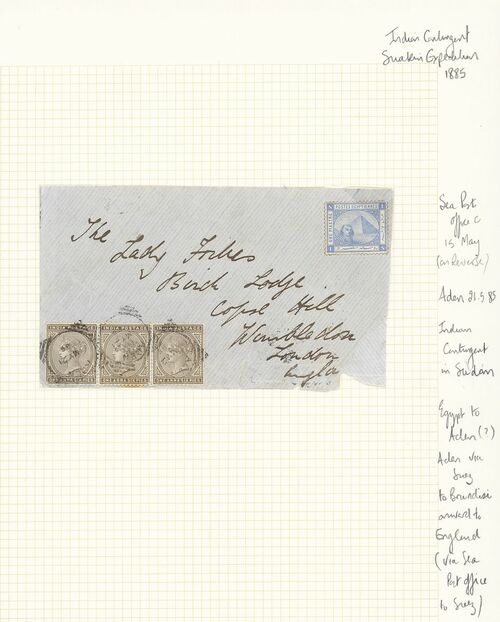 Indian Contingent
Suakin Expedition
1885
POSTES EGYPTIENNES
The
Lady Forbes
Birch Lodge
Copse Hill
Wimbledon
London
Engla
INDIA POSTAGE
INDIA POSTAGE
INDIA POSTAGE
ONE ANNA SIX PIES
ONE ANNA SIX PIES
ONE ANNA SIX PIES
Sea Post
Office C
15 May
(on Reverse)
Aden 21.5.85
Indian
Contingent
in Sudan
Egypt to
Aden (?)
Aden via
Suez
to Brindisi
onward to
England
(via Sea
Post office
to Suez)